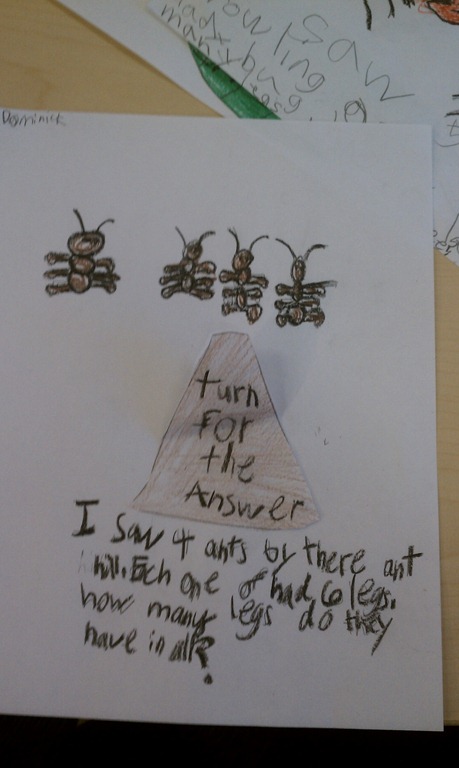 saw
owling
many bug
legs
Dominick
turn
For
the
Answer
I saw 4 ants by there ant
hill. Each one of had 6 legs.
how many legs do they
have in all?